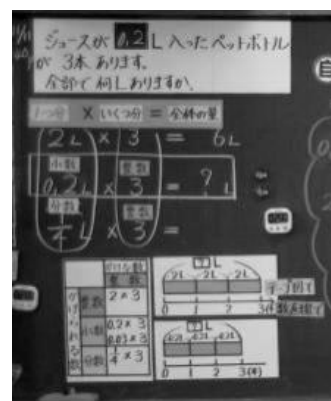 ジュースが 0.2 L 入ったペットボトル
が 3本 あります。
全部で 何L ありますか。
1つ分 × いくつ分 = 全体の量
2L × 3 = 6L
小数 整数
0.2L × 3 = ? L
分数 整数
1/4 L × 3 =
かける数
整数
かけられる数
整数 2×3
小数 0.2×3
0.03×3
分数 1/4×3
? L
2L 2L 2L
0 1 2 3(本)
テープ図で
数直線で
? L
0.2L 0.2L 0.2L
0 1 2 3(本)